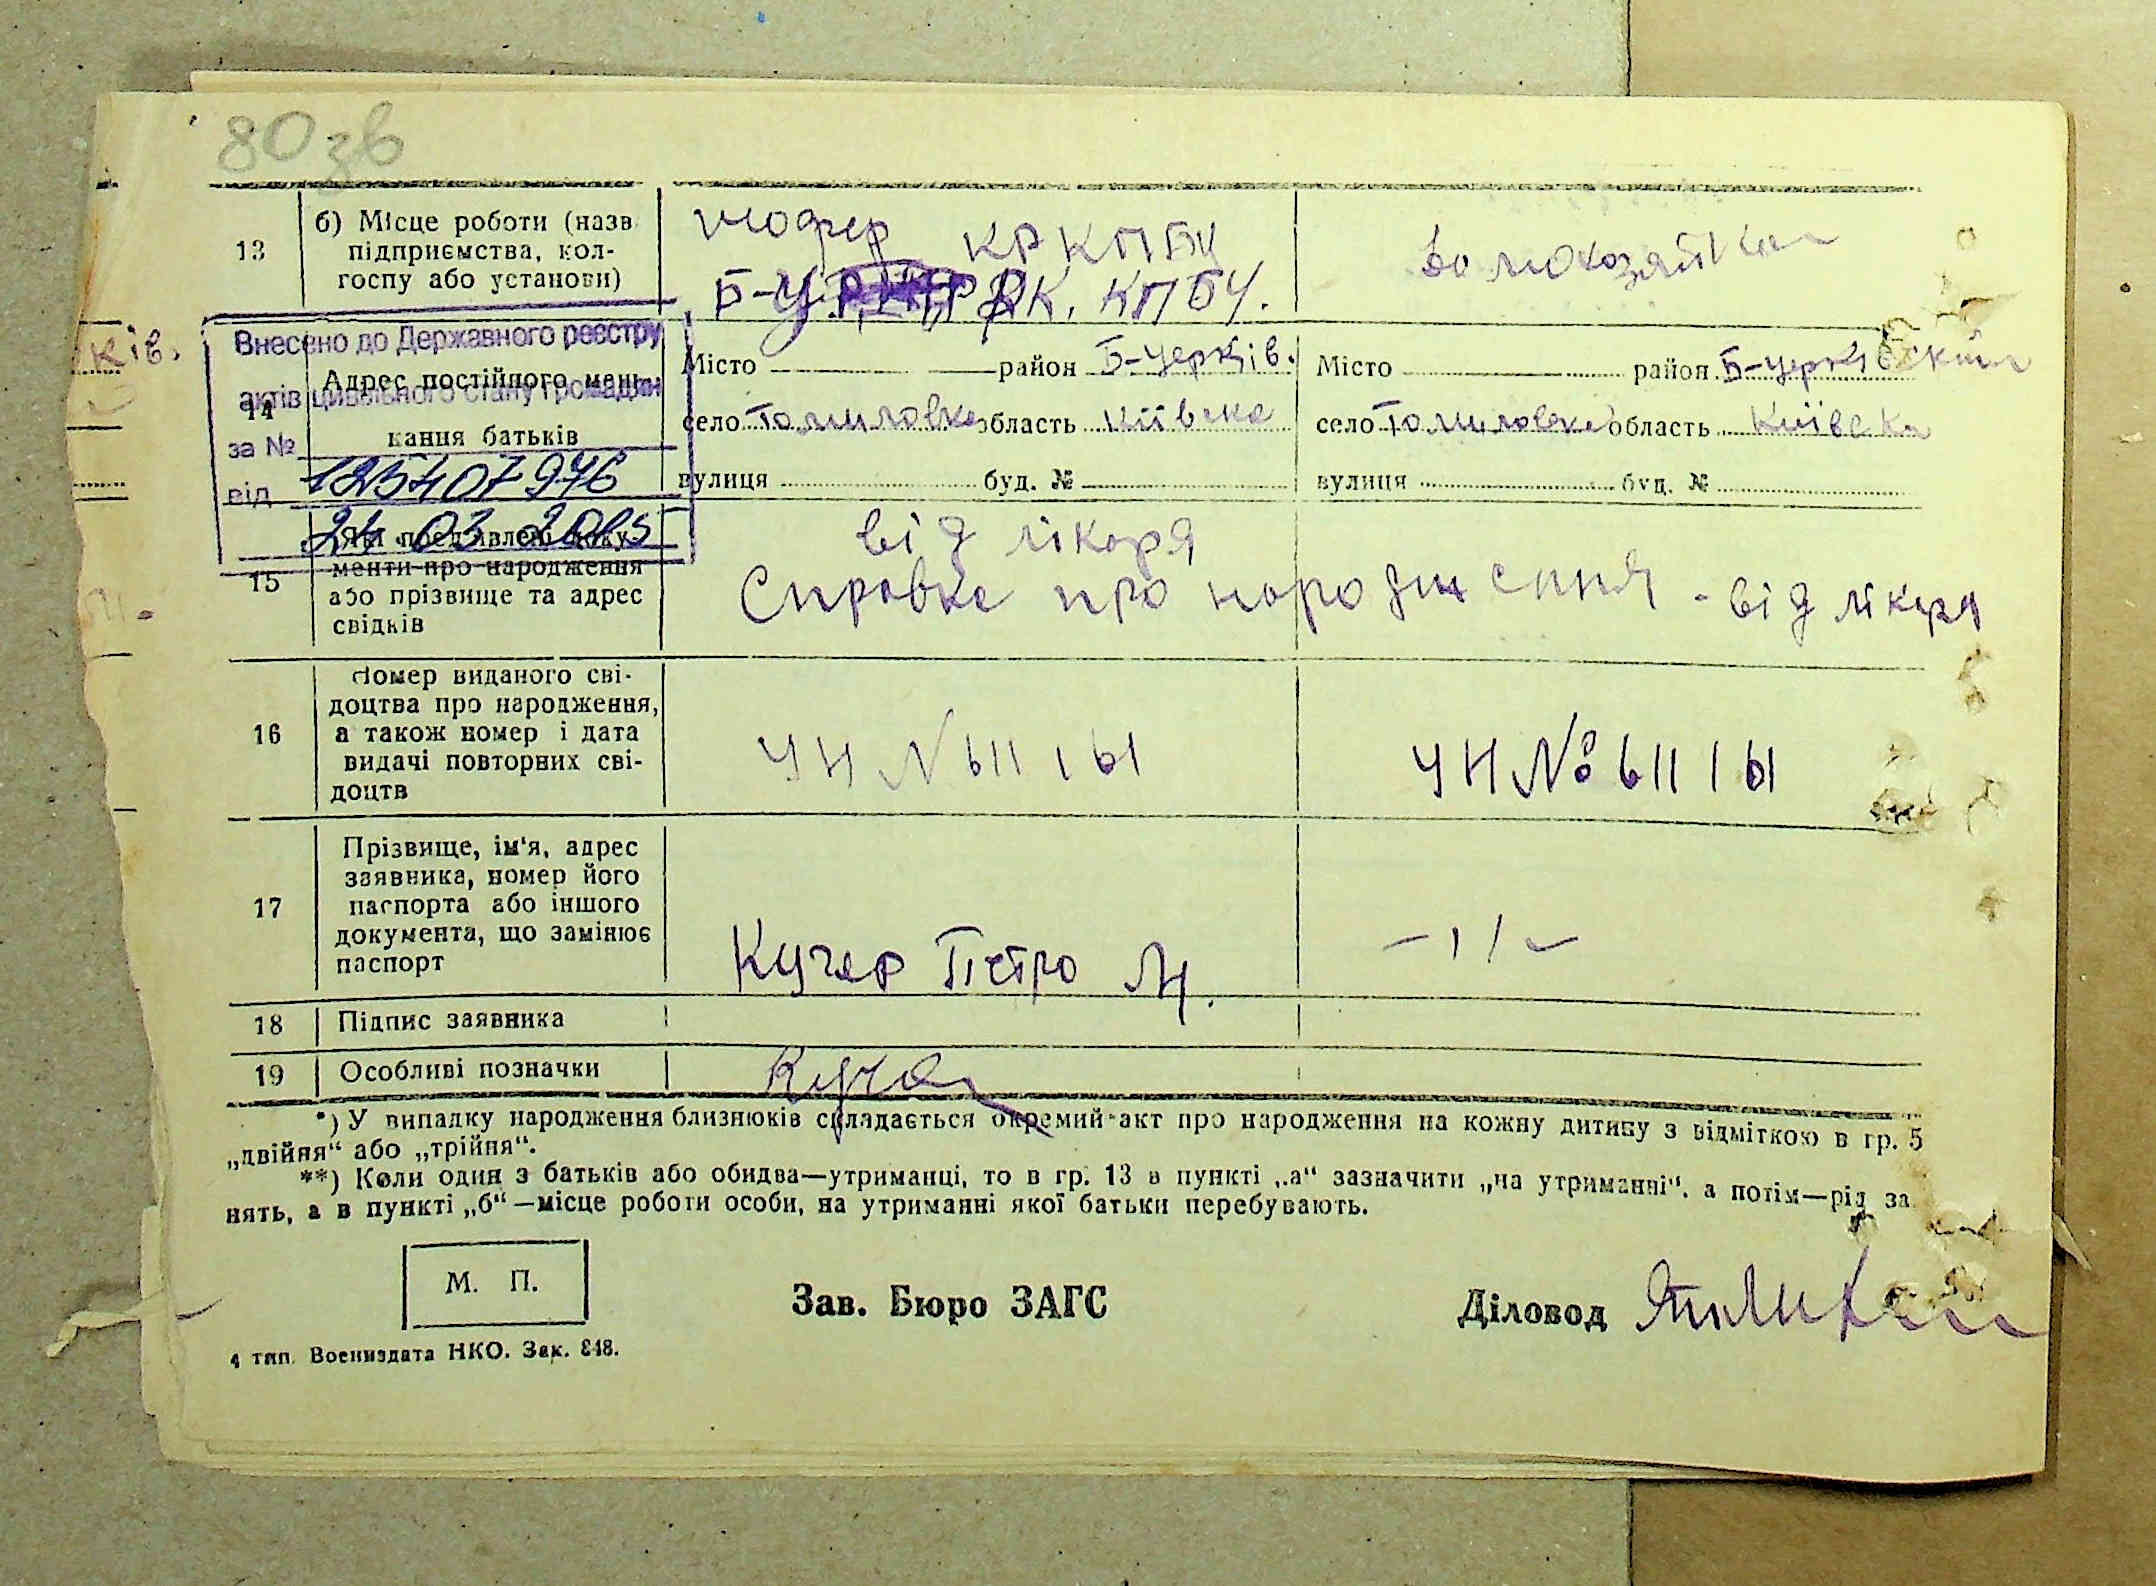 80 зв
13
б) Місце роботи (назв.
підприємства, кол-
госпу або установи)
шофер КРКПБУ
Б-У. РК. КПБУ.
домохозяйка
ків.
Внесено до Державного реєстру
актів цивільного стану громадян
за № 125407976
від 24.03.2005
14
Адрес постійного меш-
кання батьків
Місто район Б-церків.
село Томиловка область Київска
вулиця буд. №
Місто район Б-церківский
село Томиловка область Київска
вулиця буд. №
15
Які пред'явлені доку-
менти про народження
або прізвище та адрес
свідків
від лікаря
Справка про народження - від лікаря
16
Номер виданого сві-
доцтва про народження,
а також номер і дата
видачі повторних сві-
доцтв
УН N 611161
УН № 611161
17
Прізвище, ім'я, адрес
заявника, номер його
паспорта або іншого
документа, що замінює
паспорт
Кучер Петро М.
– // –
18 Підпис заявника
19 Особливі позначки
Кучер
*) У випадку народження близнюків складається окремий акт про народження на кожну дитину з відміткою в гр. 5
„двійня“ або „трійня“.
**) Коли один з батьків або обидва—утриманці, то в гр. 13 в пункті „а“ зазначити „на утриманні“, а потім—рід за
нять, а в пункті „б“—місце роботи особи, на утриманні якої батьки перебувають.
М. П.
Зав. Бюро ЗАГС
Діловод
4 тип. Воениздата НКО. Зак. 848.